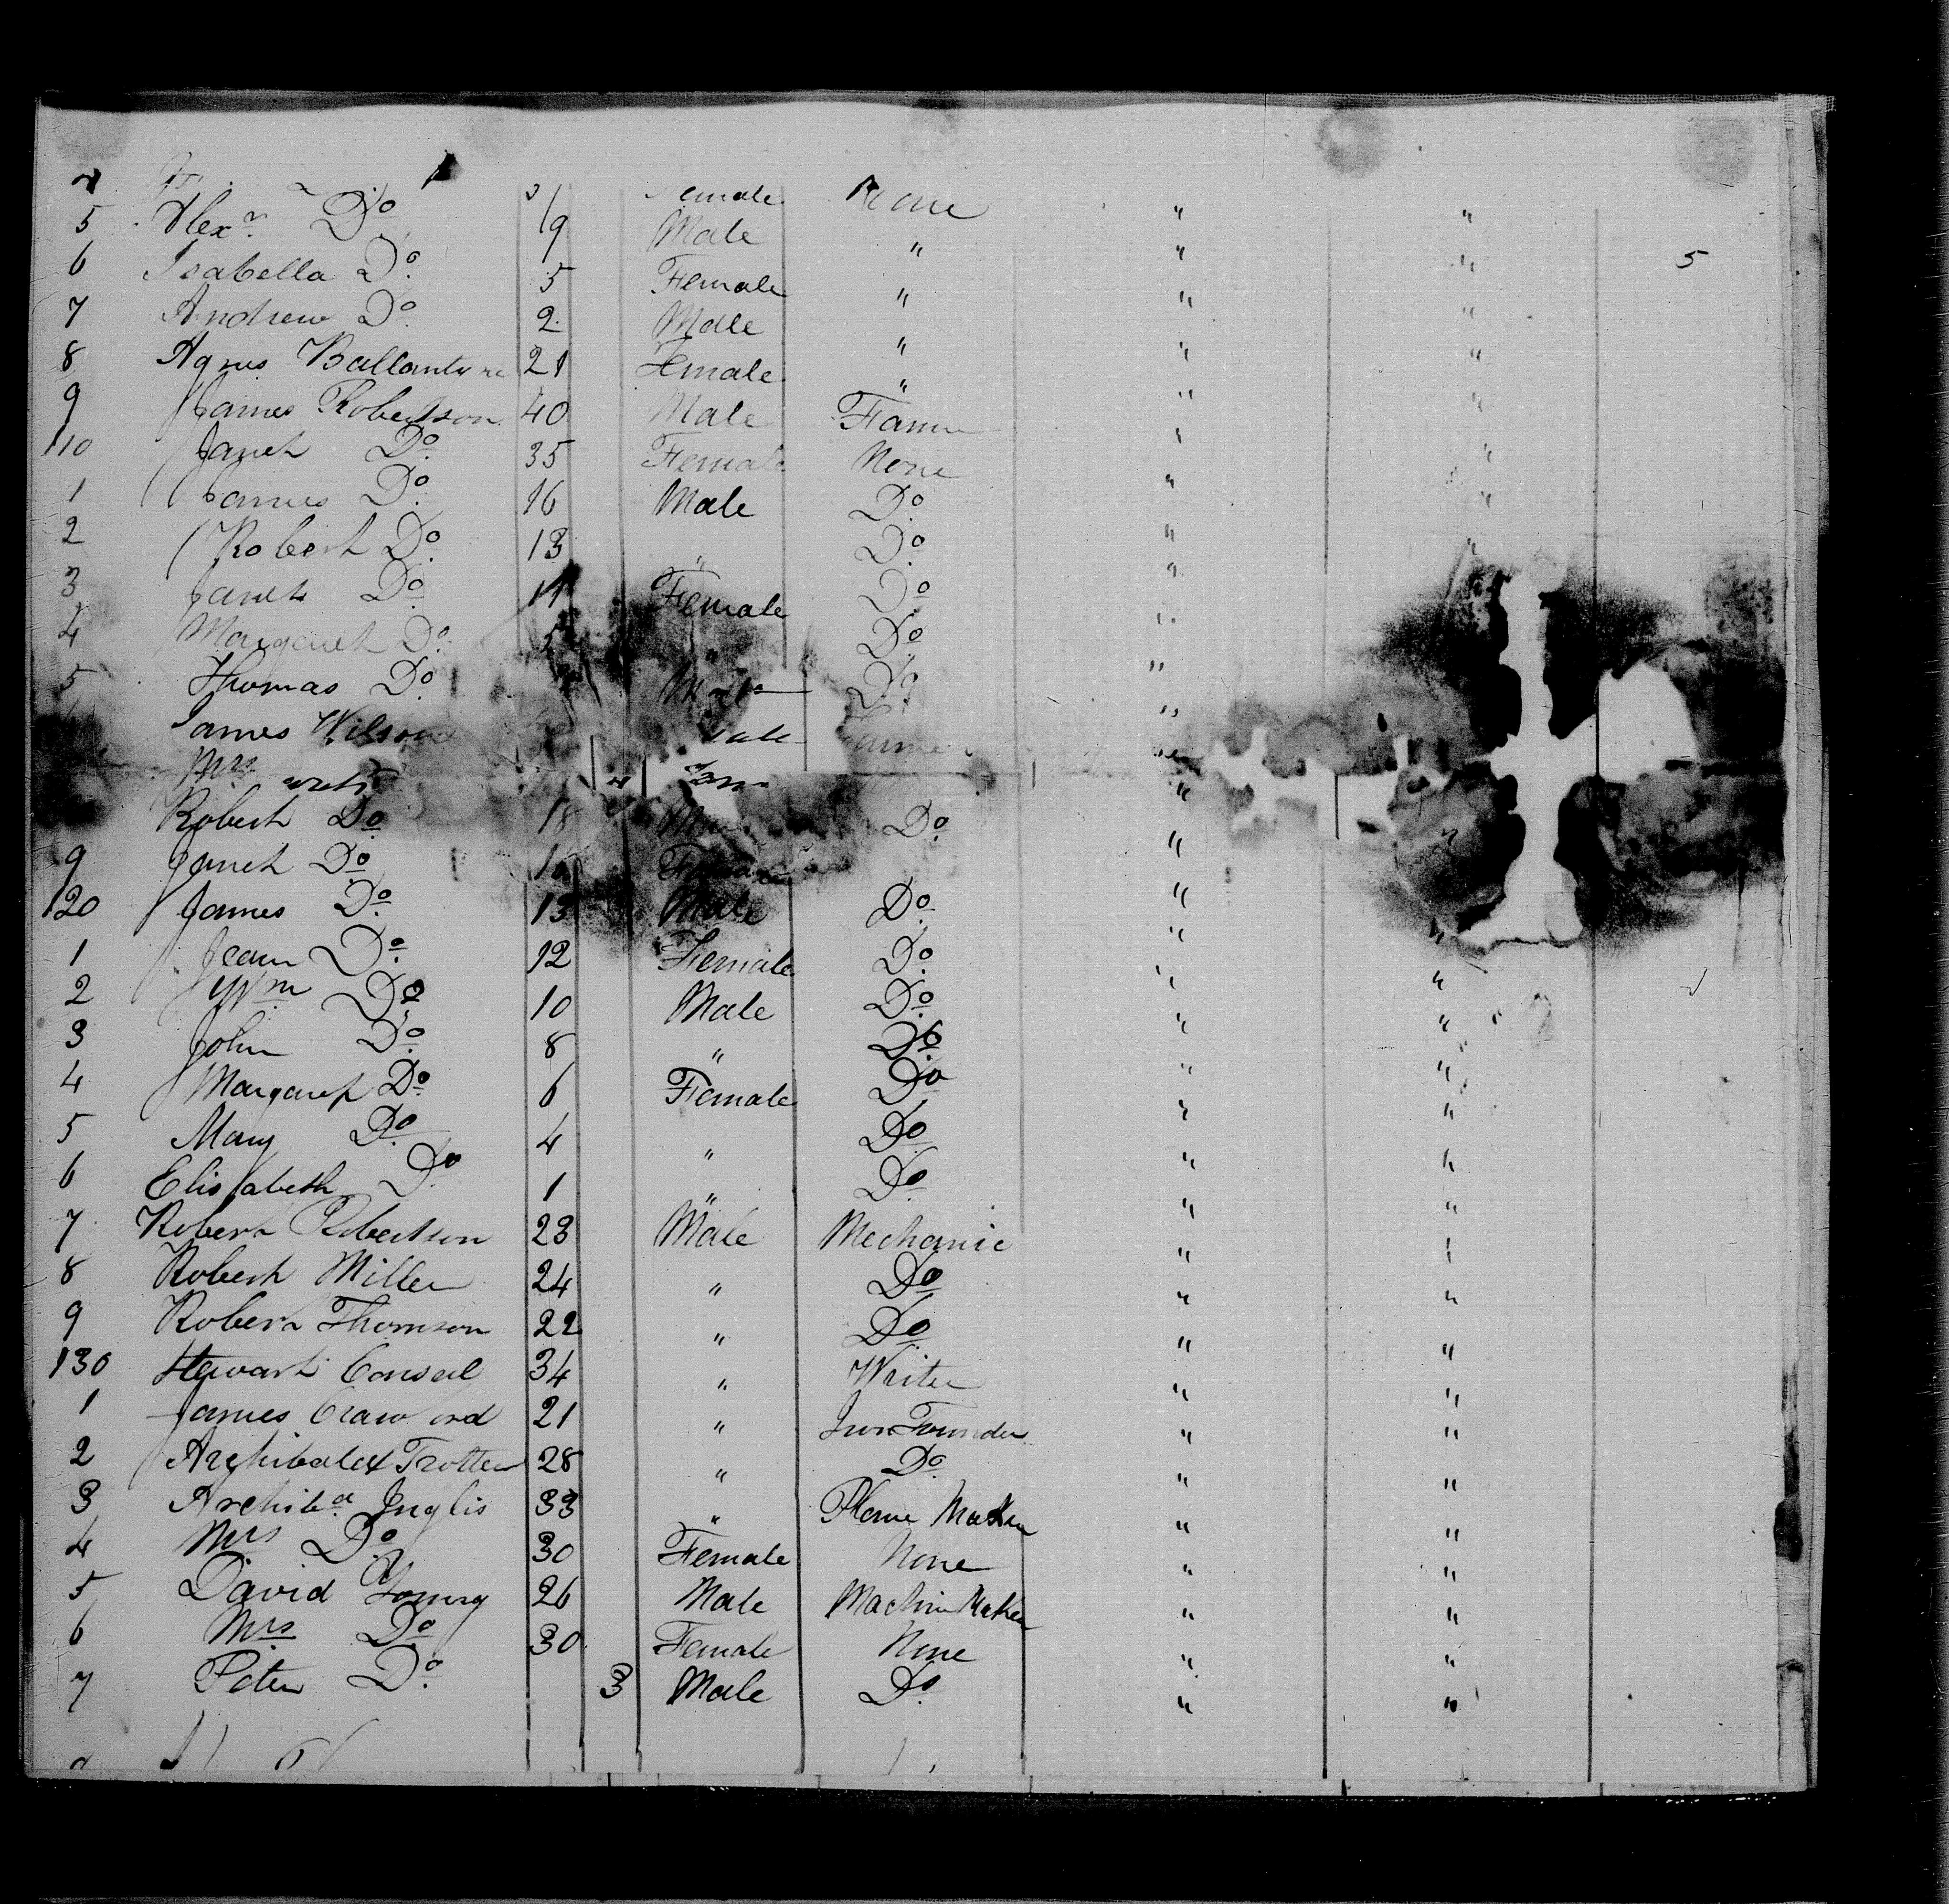 emale None " "
5 Alexr. Do 9 Male " " "
6 Isabella Do. 5 Female " " " 5
7 Andrew Do. 2 Male " " "
8 Agnes Ballantyne 21 Female " " "
9 James Robertson 40 Male Farmer " "
110 Janet Do 35 Female None " "
1 James Do. 16 Male Do. " "
2 Robert Do. 13 " Do. " "
3 Janet Do. 11 Female Do "
4 Margaret Do. " Do. "
5 Thomas Do. Do. "
James Wilson "
Mrs
Robert Do. 18 Do. " "
9 Janet Do. "
120 James Do. 13 Male Do. " "
1 Jean Do. 12 Female Do. " "
2 Wm Do. 10 Male Do. " "
3 John Do. 8 " Do. " "
4 Margaret Do. 6 Female Do. " "
5 Mary Do. 4 " Do. " "
6 Elisabeth Do. 1 " Do. " "
7 Robert Robertson 23 Male Mechanic " "
8 Robert Miller 24 " Do " "
9 Robert Thomson 22 " Do. " "
130 Stewart 34 " Writer " "
1 James Crawford 21 " Iron Founder " "
2 Archibald Trotter 28 " Do. " "
3 Archibd. Inglis 33 " Maker " "
4 Mrs Do. 30 Female None " "
5 David Young 26 Male Machine Maker " "
6 Mrs Do. 30 Female None " "
7 Peter Do. 3 Male Do. " "